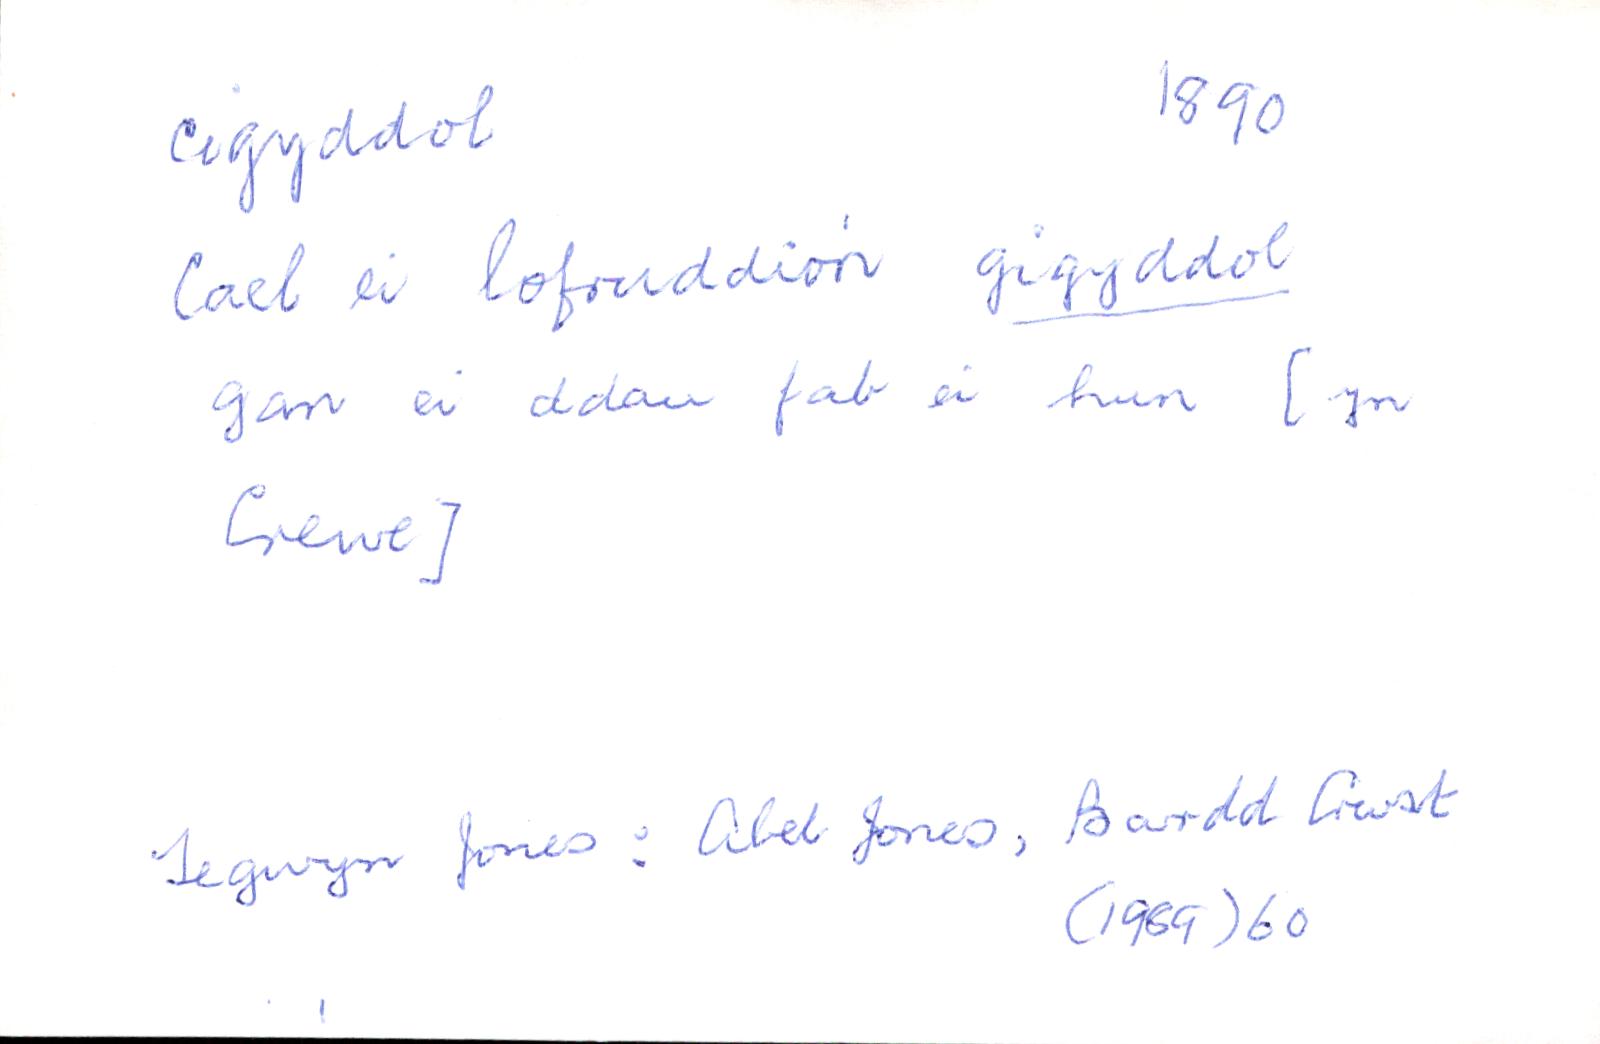 cigyddol 1890
Cael ei lofruddio'n gigyddol
gan ei ddau fab ei hun [yn
Crewe]
Tegwyn Jones: Abel Jones, Bardd Crwst
(1989) 60